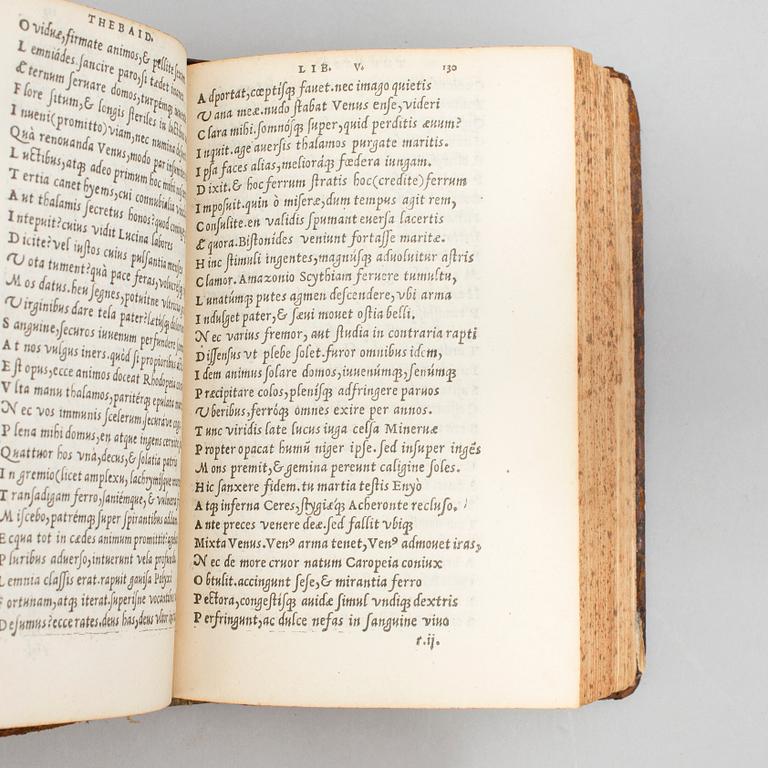 THEBAID.
O viduæ, firmate animos, & pellite
L emniádes. sancire paro, si tædet
Æ ternum seruare domos, turpémque
F lore situm, & longis steriles in
I nueni (promitto) viam, nec numina
Quà renouanda Venus, modo par
L uctibus, atq; adeo primum hoc mihi
T ertia canet hyems, cui connubialia
A ut thalamis secretus honos? quod
I ntepuit? cuius vidit Lucina labores
D icite? vel iustos cuius pulsantia menses
V ota tument? quà pace feras,
M os datus. heu segnes, potuitne
V irginibus dare tela pater?
S anguine, securos iuuenum perfundere
A t nos vulgus iners. quòd si propioribus
E st opus, ecce animos doceat Rhodopeia
V lta manu thalamos, paritérq; epulata
N ec vos immunis scelerum, securáve
P lena mihi domus, en atque ingens
Quattuor hos vnà, decus, & solatia patris
I n gremio (licet amplexu, lachrymisque
T ransadigam ferro, saniémque, & vulnera
M iscebo, patrémq; super spirantibus
E cqua tot in cædes animum promittit?
P luribus aduerso, intuerunt vela profundo
L emnia classis erat. rapuit gauisa Polyxo
F ortunam, atq; iterat. superisne vocantibus
D esumus? ecce rates. deus has, deus vltor
LIB. V. 130
A dportat, cœptisq; fauet. nec imago quietis
V ana meæ. nudo stabat Venus ense, videri
C lara mihi. somnósq; super, quid perditis æuum?
I nquit. age auersis thalamos purgate maritis.
I psa faces alias, melioráq; fœdera iungam.
D ixit. & hoc ferrum stratis hoc (credite) ferrum
I mposuit. quin ò miseræ, dum tempus agit rem,
C onsulite. en validis spumant euersa lacertis
Æ quora. Bistonides veniunt fortasse maritæ.
H inc stimuli ingentes, magnúsq; aduoluitur astris
C lamor. Amazonio Scythiam feruere tumultu,
L unatúmq; putes agmen descendere, vbi arma
I ndulget pater, & sæui mouet ostia belli.
N ec varius fremor, aut studia in contraria rapti
D issensus vt plebe solet. furor omnibus idem,
I dem animus solare domos, iuuenúmq;, senúmq;
P ræcipitare colos, plenisq; adfringere paruos
V beribus, ferróq; omnes exire per annos.
T unc viridis late lucus iuga celsa Mineruæ
P ropter opacat humũ niger ipse. sed insuper ingẽs
M ons premit, & gemina pereunt caligine soles.
H ic sanxere fidem. tu martia testis Enyò
A tq; inferna Ceres, stygiæq; Acheronte recluso.
A nte preces venere deæ. sed fallit vbiq;
Mixta Venus. Venꝰ arma tenet, Venꝰ admouet iras,
N ec de more cruor natum Caropeia coniux
O btulit. accingunt sese, & mirantia ferro
P ectora, congestisq; auidæ simul vndiq; dextris
P erfringunt, ac dulce nefas in sanguine viuo
r.ij.